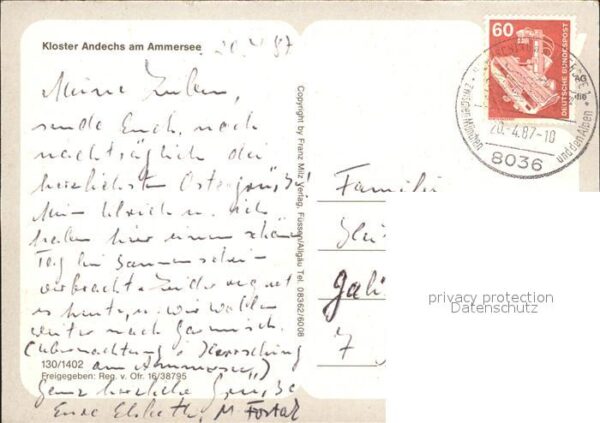 Kloster Andechs am Ammersee
20.4.87
Meine Lieben,
sende Euch, noch
nachträglich die
herzlichsten Ostergrüße!
Mein Ulrich u. ich
haben hier einen schönen
Tag bei Sonnenschein
verbracht. Leider regnet
es heute. wir wollen
weiter nach Garmisch.
(Übernachtung i. Herrsching
am Ammersee)
Ganz herzliche Grüße
Eure Elsbeth,
130/1402
Freigegeben: Reg. v. Ofr. 16/38795
Copyright by Franz Milz Verlag, Füssen/Allgäu Tel. 08362/6008
Familie
7
60
DEUTSCHE BUNDESPOST
20.-4.87-10
zwischen München
und den Alpen
8036
privacy protection
Datenschutz